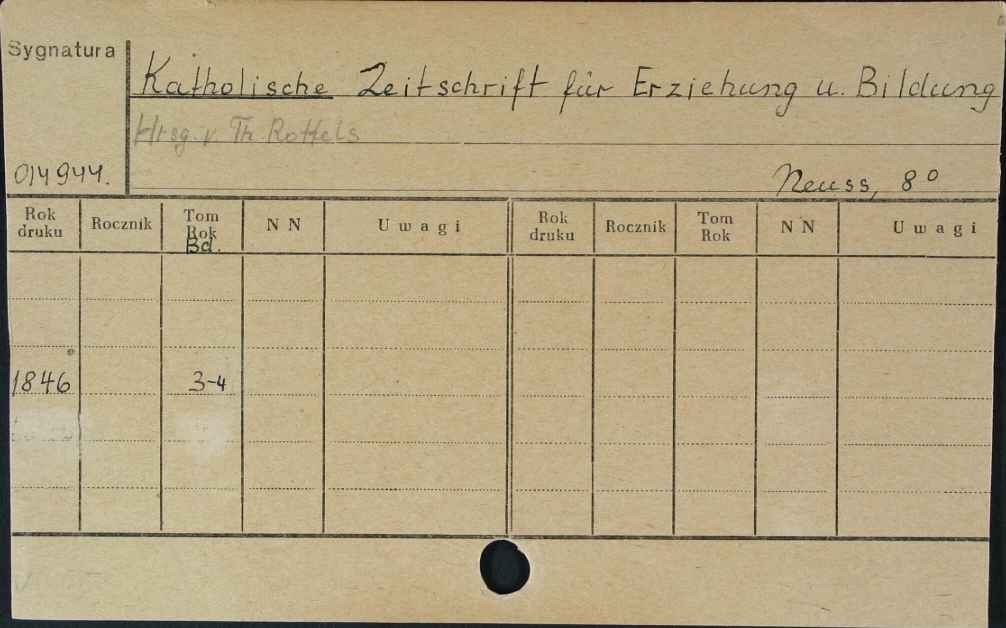 Sygnatura
Katholische Zeitschrift für Erziehung u. Bildung
Hrsg. v. Th. Rottels
014944.
Neuss, 8°
Rok druku Rocznik Tom Rok Bd. N N Uwagi Rok druku Rocznik Tom Rok N N Uwagi
1846 3-4